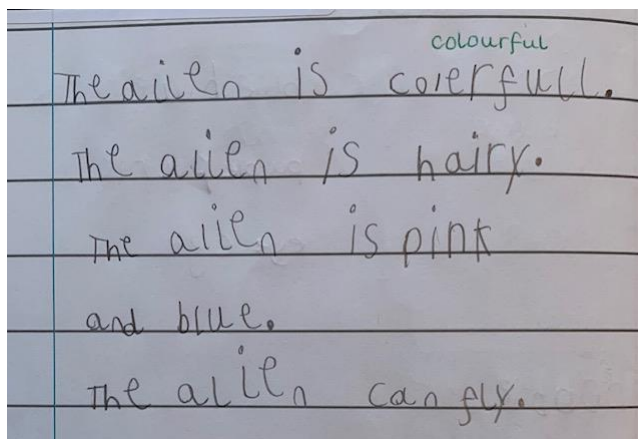 colourful
The alien is colerfull.
The alien is hairy.
The alien is pink
and blue.
The alien can fly.